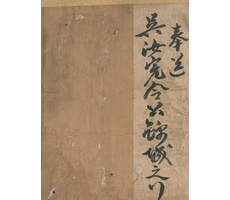 奉送
吳汝完令公錦城之行